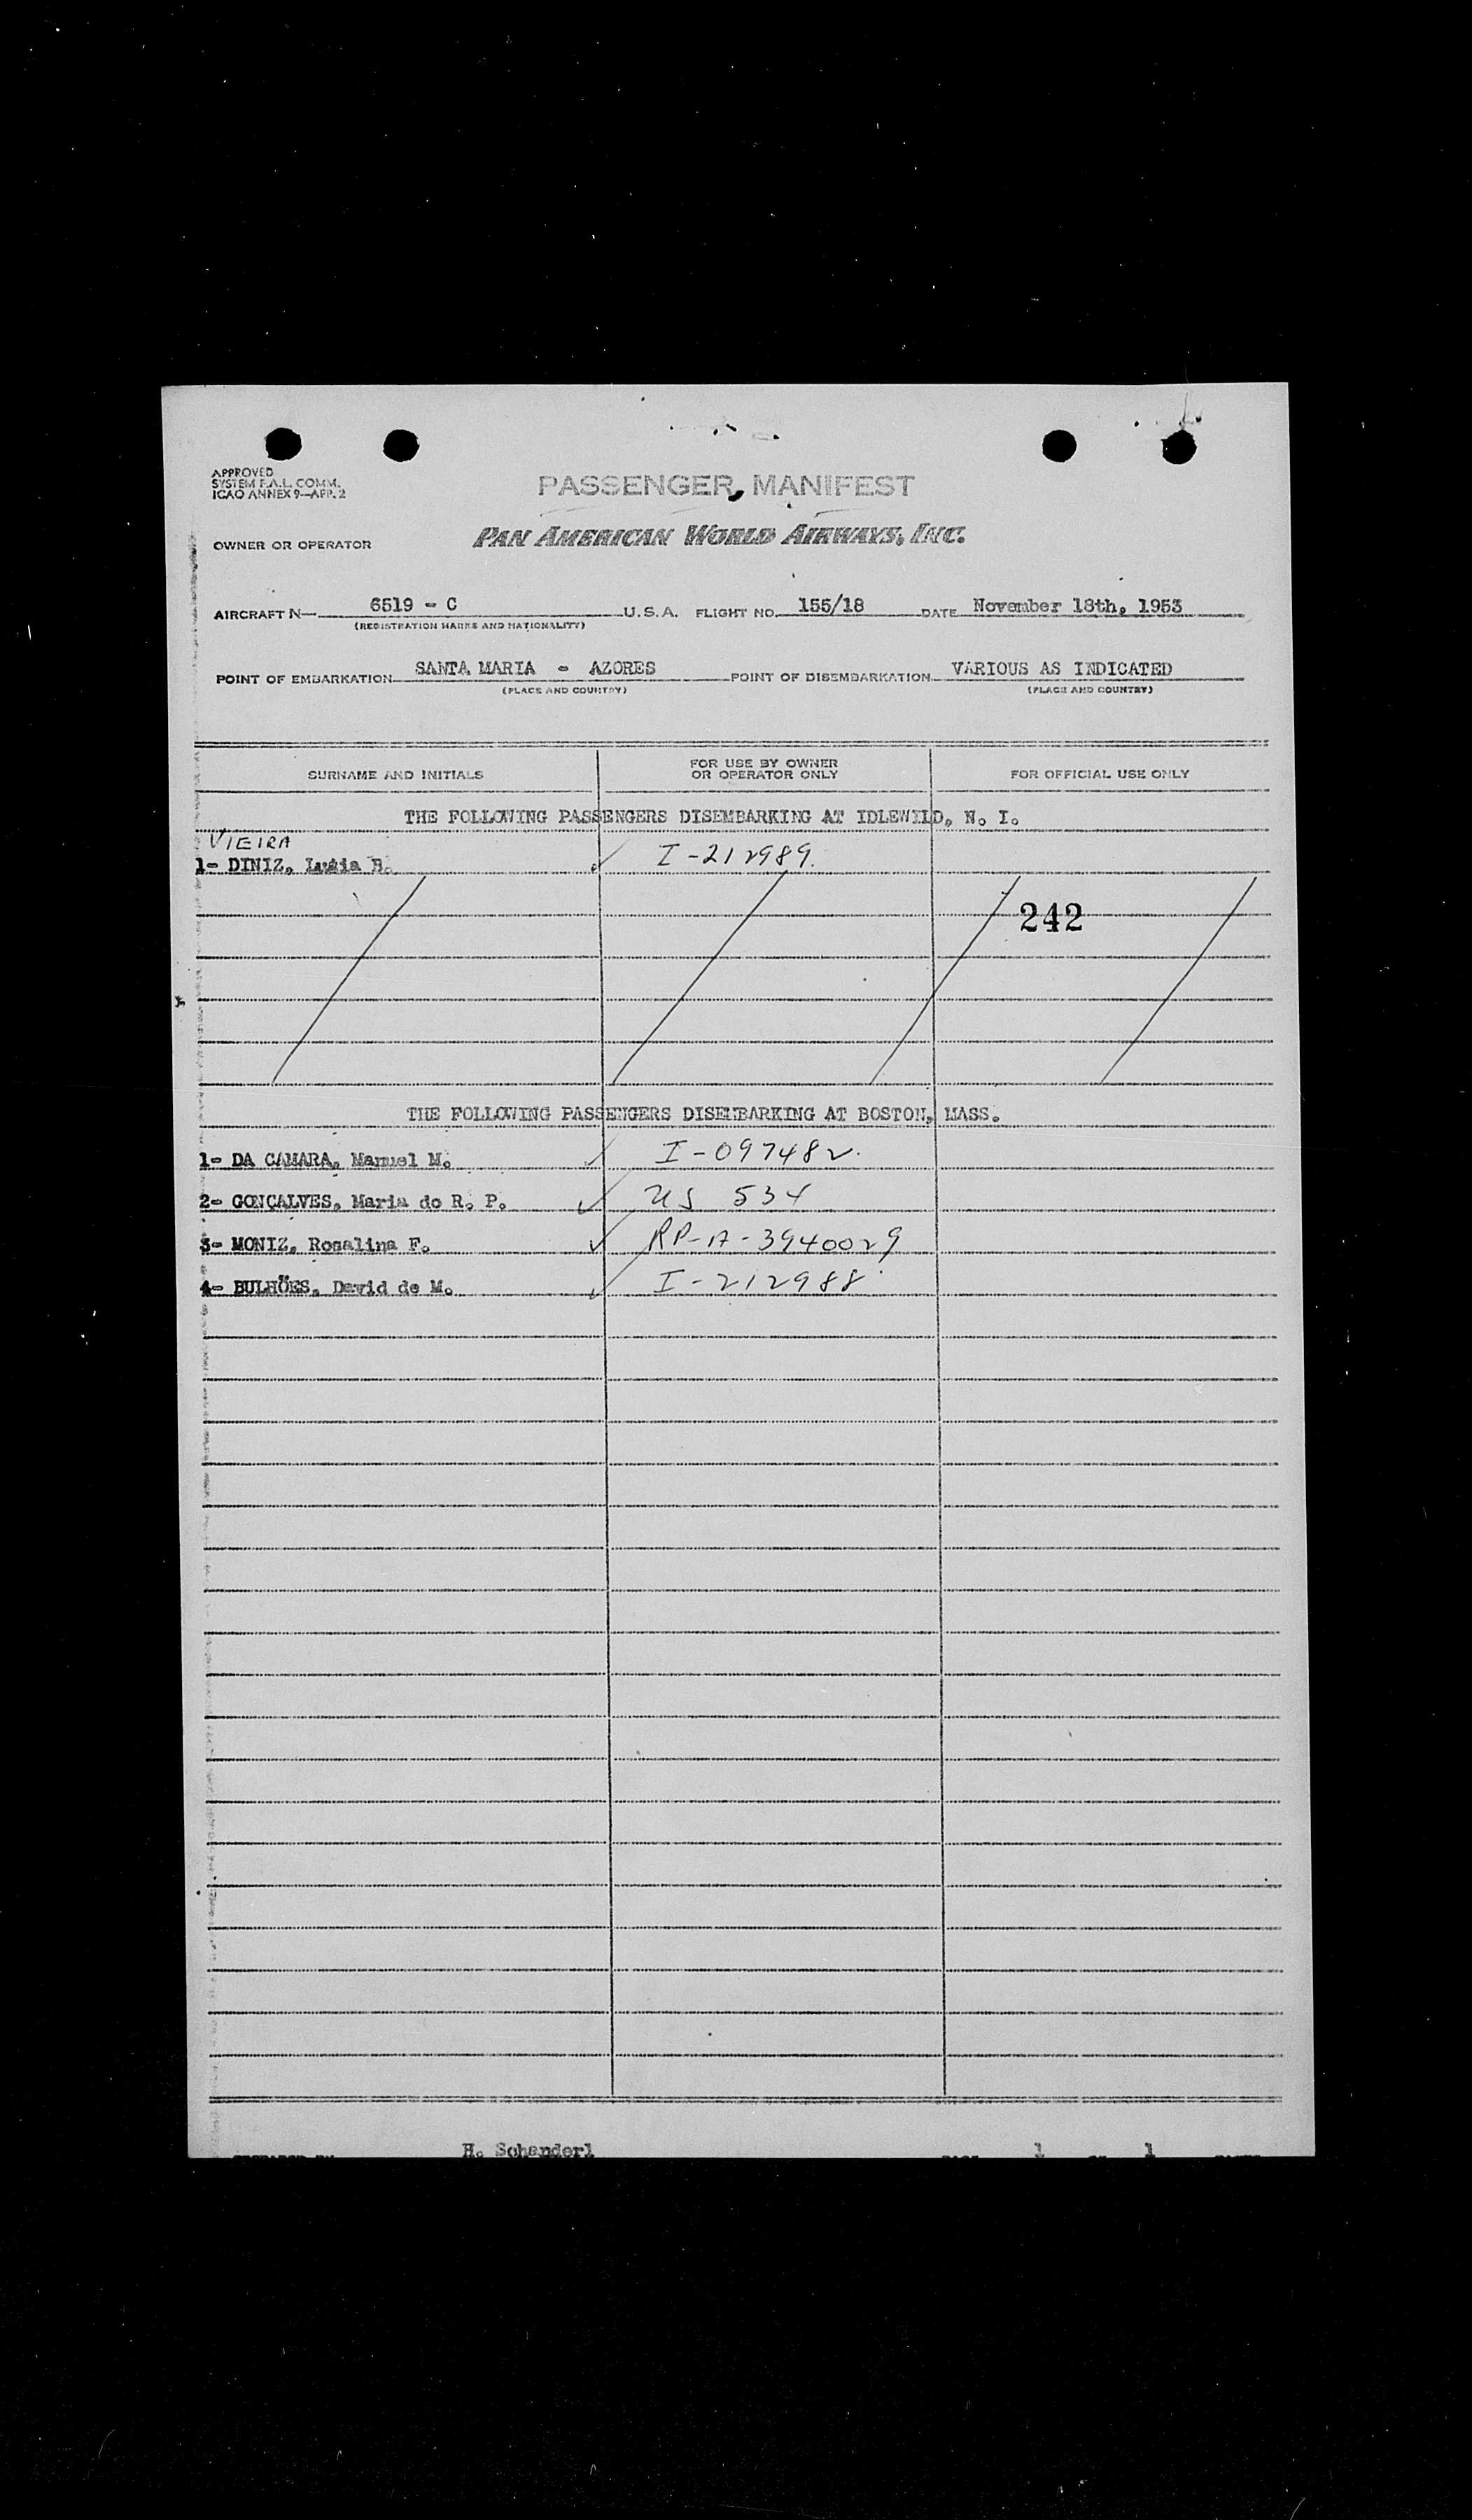 APPROVED
SYSTEM F.A.L. COMM.
ICAO ANNEX 9—APP. 2
PASSENGER MANIFEST
OWNER OR OPERATOR PAN AMERICAN WORLD AIRWAYS, INC.
AIRCRAFT N— 6519 - C U.S.A. FLIGHT NO. 155/18 DATE November 18th, 1953
(REGISTRATION MARKS AND NATIONALITY)
POINT OF EMBARKATION SANTA MARIA - AZORES POINT OF DISEMBARKATION VARIOUS AS INDICATED
(PLACE AND COUNTRY) (PLACE AND COUNTRY)
SURNAME AND INITIALS FOR USE BY OWNER OR OPERATOR ONLY FOR OFFICIAL USE ONLY
THE FOLLOWING PASSENGERS DISEMBARKING AT IDLEWILD, N. I.
VIEIRA
1- DINIZ, B. ✓ I-212989.
242
THE FOLLOWING PASSENGERS DISEMBARKING AT BOSTON, MASS.
1- DA CAMARA, Manuel M. ✓ I-097482.
2- GONÇALVES, Maria do R. P. ✓ US 534
3- MONIZ, Rosalina F. ✓ RP-A-3940029
4- BULHÕES, David de M. ✓ I-212988
H. Schanderl 1 1